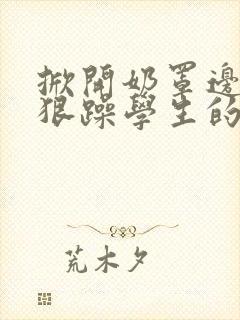 掀開奶罩邊
狠躁學生的
荒木夕